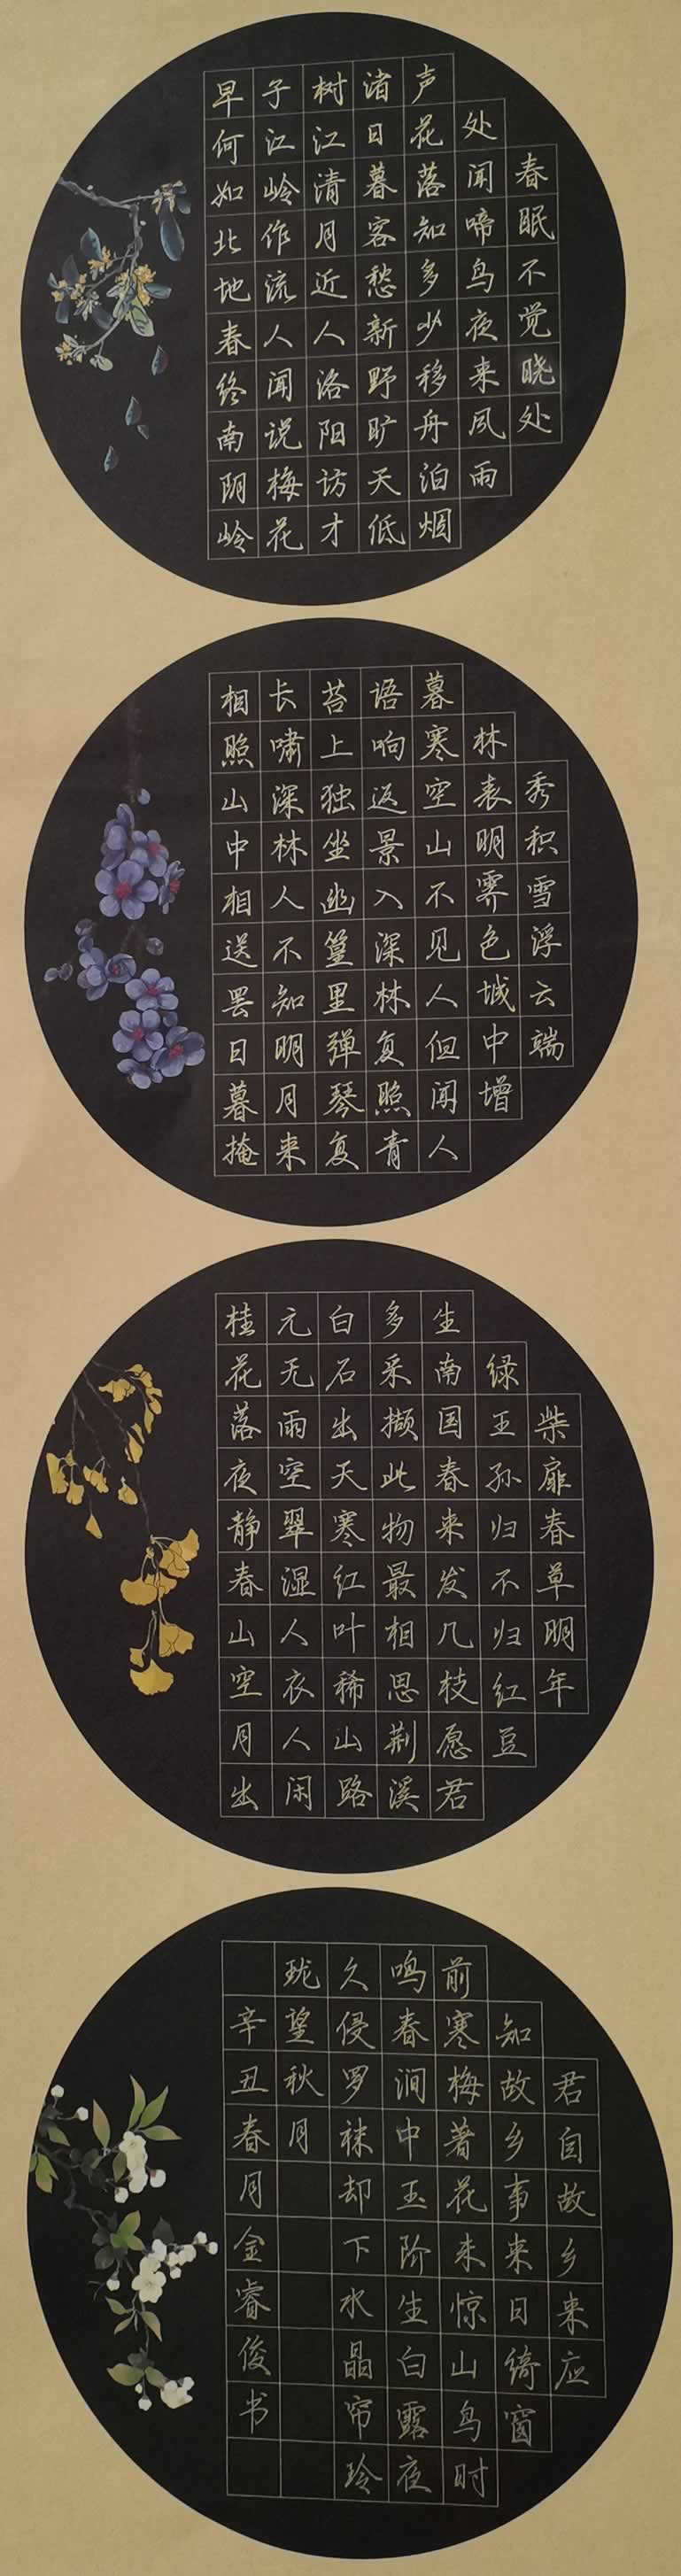 春眠不觉晓处
处闻啼鸟夜来风雨
声花落知多少移舟泊烟
渚日暮客愁新野旷天低
树江清月近人洛阳访才
子江岭作流人闻说梅花
早何如北地春终南阴岭
秀积雪浮云端
林表明霁色城中增
暮寒空山不见人但闻人
语响返景入深林复照青
苔上独坐幽篁里弹琴复
长啸深林人不知明月来
相照山中相送罢日暮掩
柴扉春草明年
绿王孙归不归红豆
生南国春来发几枝愿君
多采撷此物最相思荆溪
白石出天寒红叶稀山路
元无雨空翠湿人衣人闲
桂花落夜静春山空月出
君自故乡来应
知故乡事来日绮窗
前寒梅著花未惊山鸟时
鸣春涧中玉阶生白露夜
久侵罗袜却下水晶帘玲
珑望秋月
辛丑春月金睿俊书